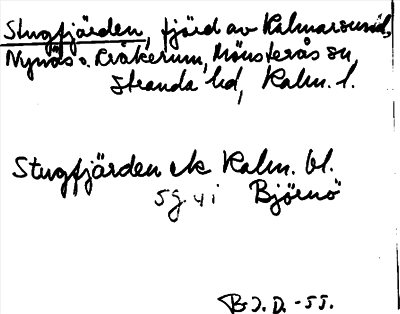 Stugfjärden, fjärd av Kalmarsund,
Nynäs o. Kråkerum, Mönsterås sn
Stranda hd, Kalm. l.
Stugfjärden ek Kalm. bl.
5 g Björnö
B.J.D. -55.